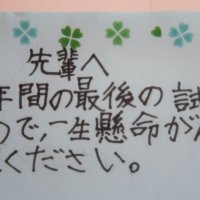 先輩へ
年間の最後の試
ので,一生懸命が
ください。